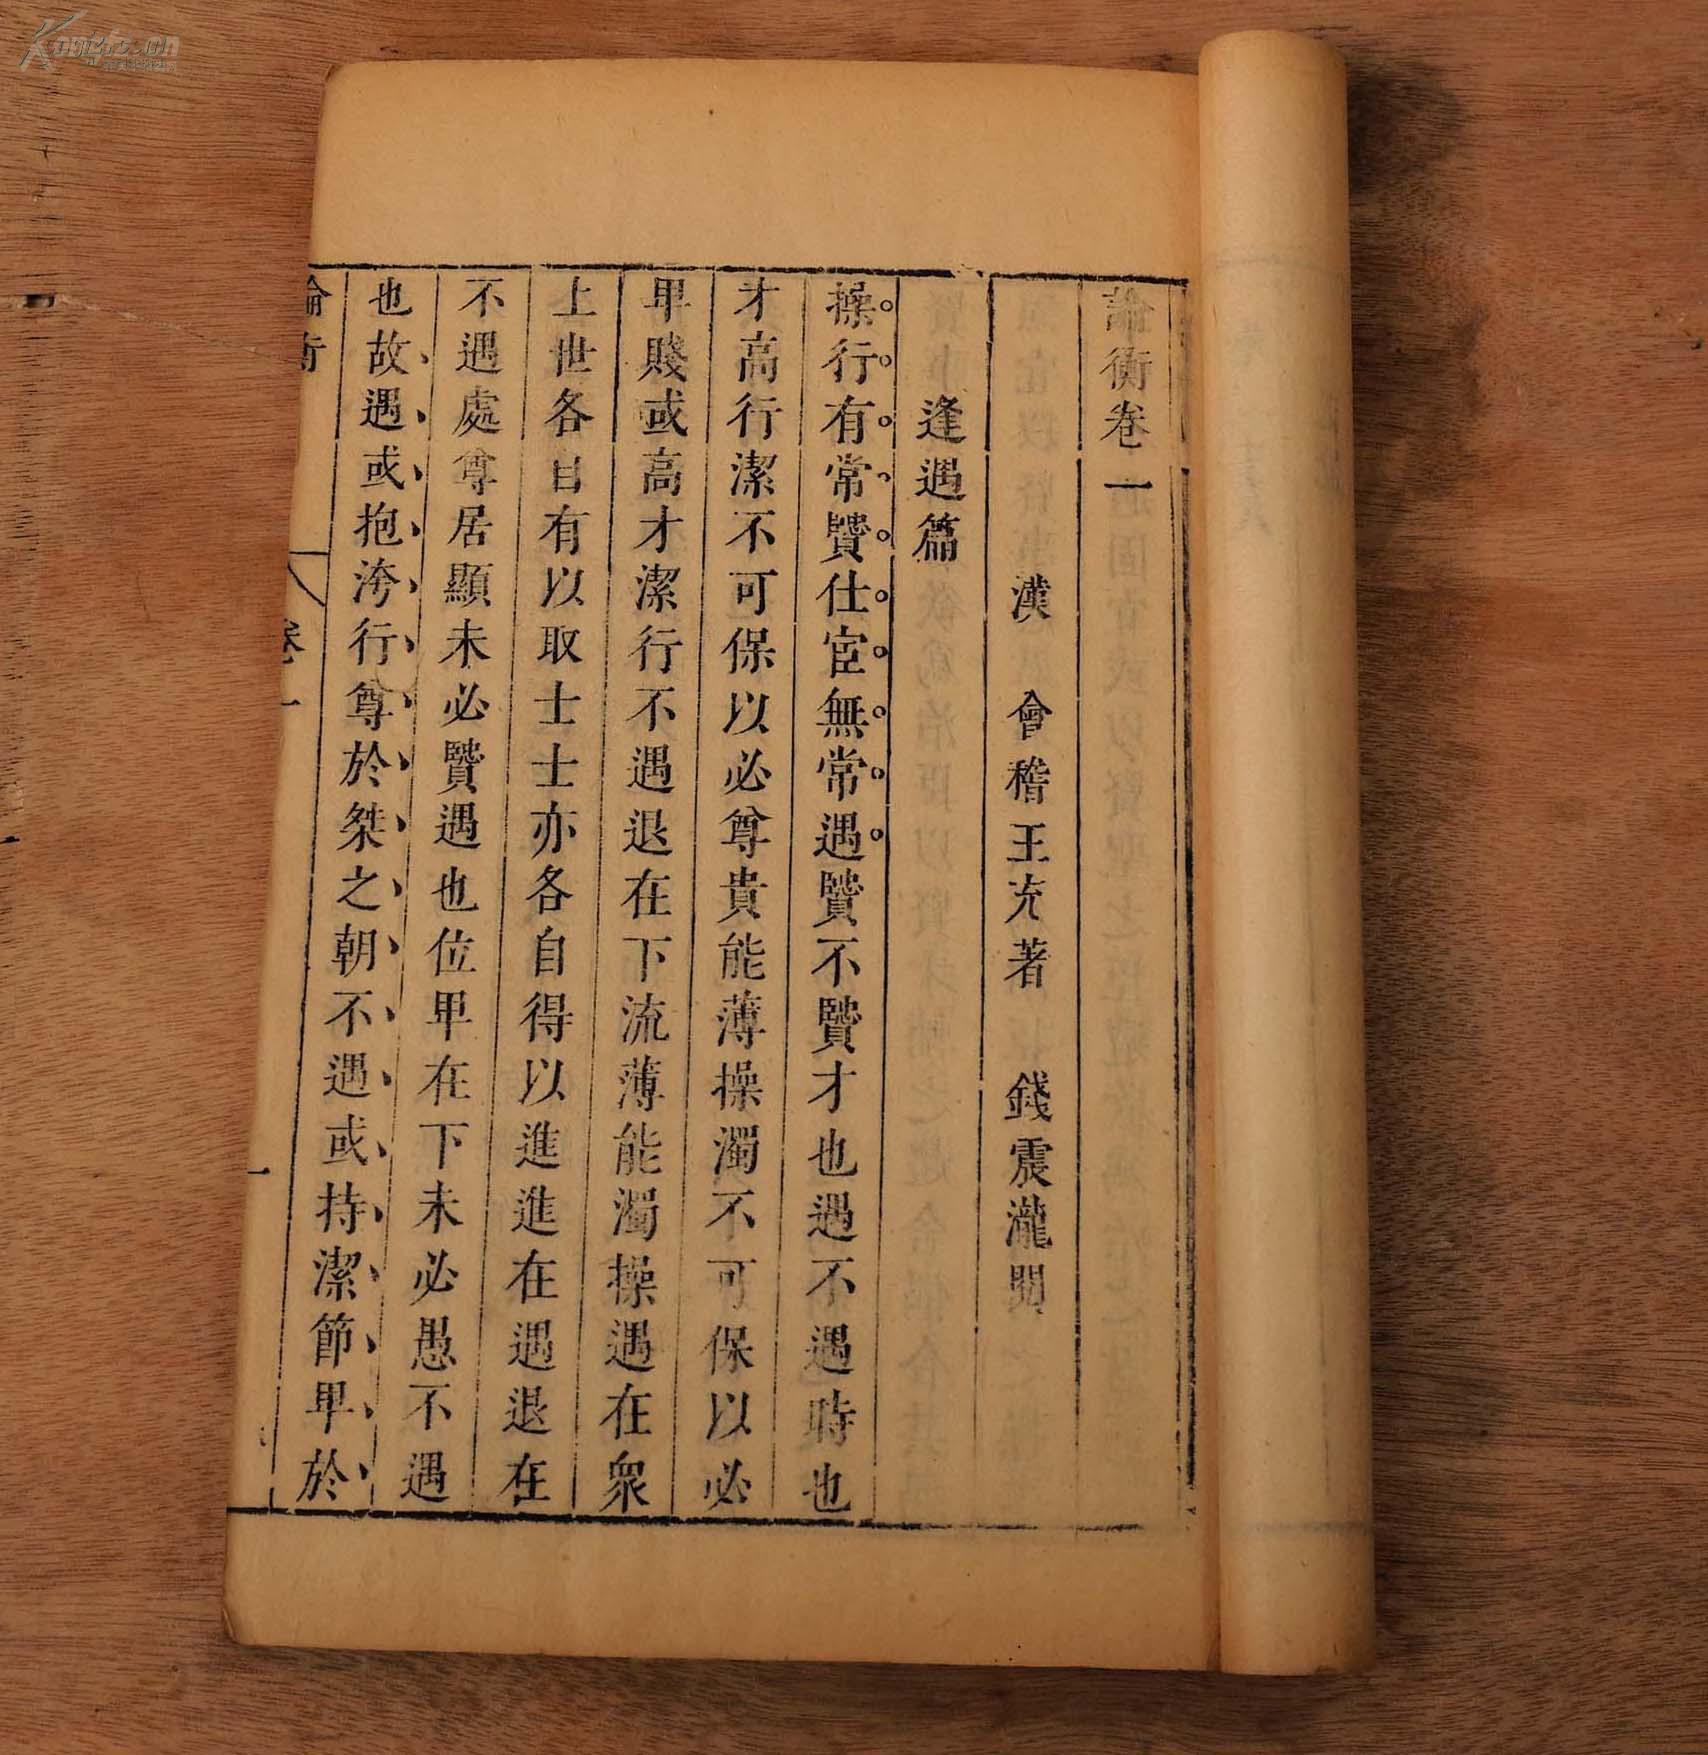 論衡卷一
漢　會稽王充著　錢震瀧閱
逢遇篇
操行有常賢仕宦無常遇賢不賢才也遇不遇時也
才高行潔不可保以必尊貴能薄操濁不可保以必
卑賤或高才潔行不遇退在下流薄能濁操遇在衆
上世各自有以取士士亦各自得以進進在遇退在
不遇處尊居顯未必賢遇也位卑在下未必愚不遇
也故遇或抱洿行尊於桀之朝不遇或持潔節卑於
論衡　卷一　一